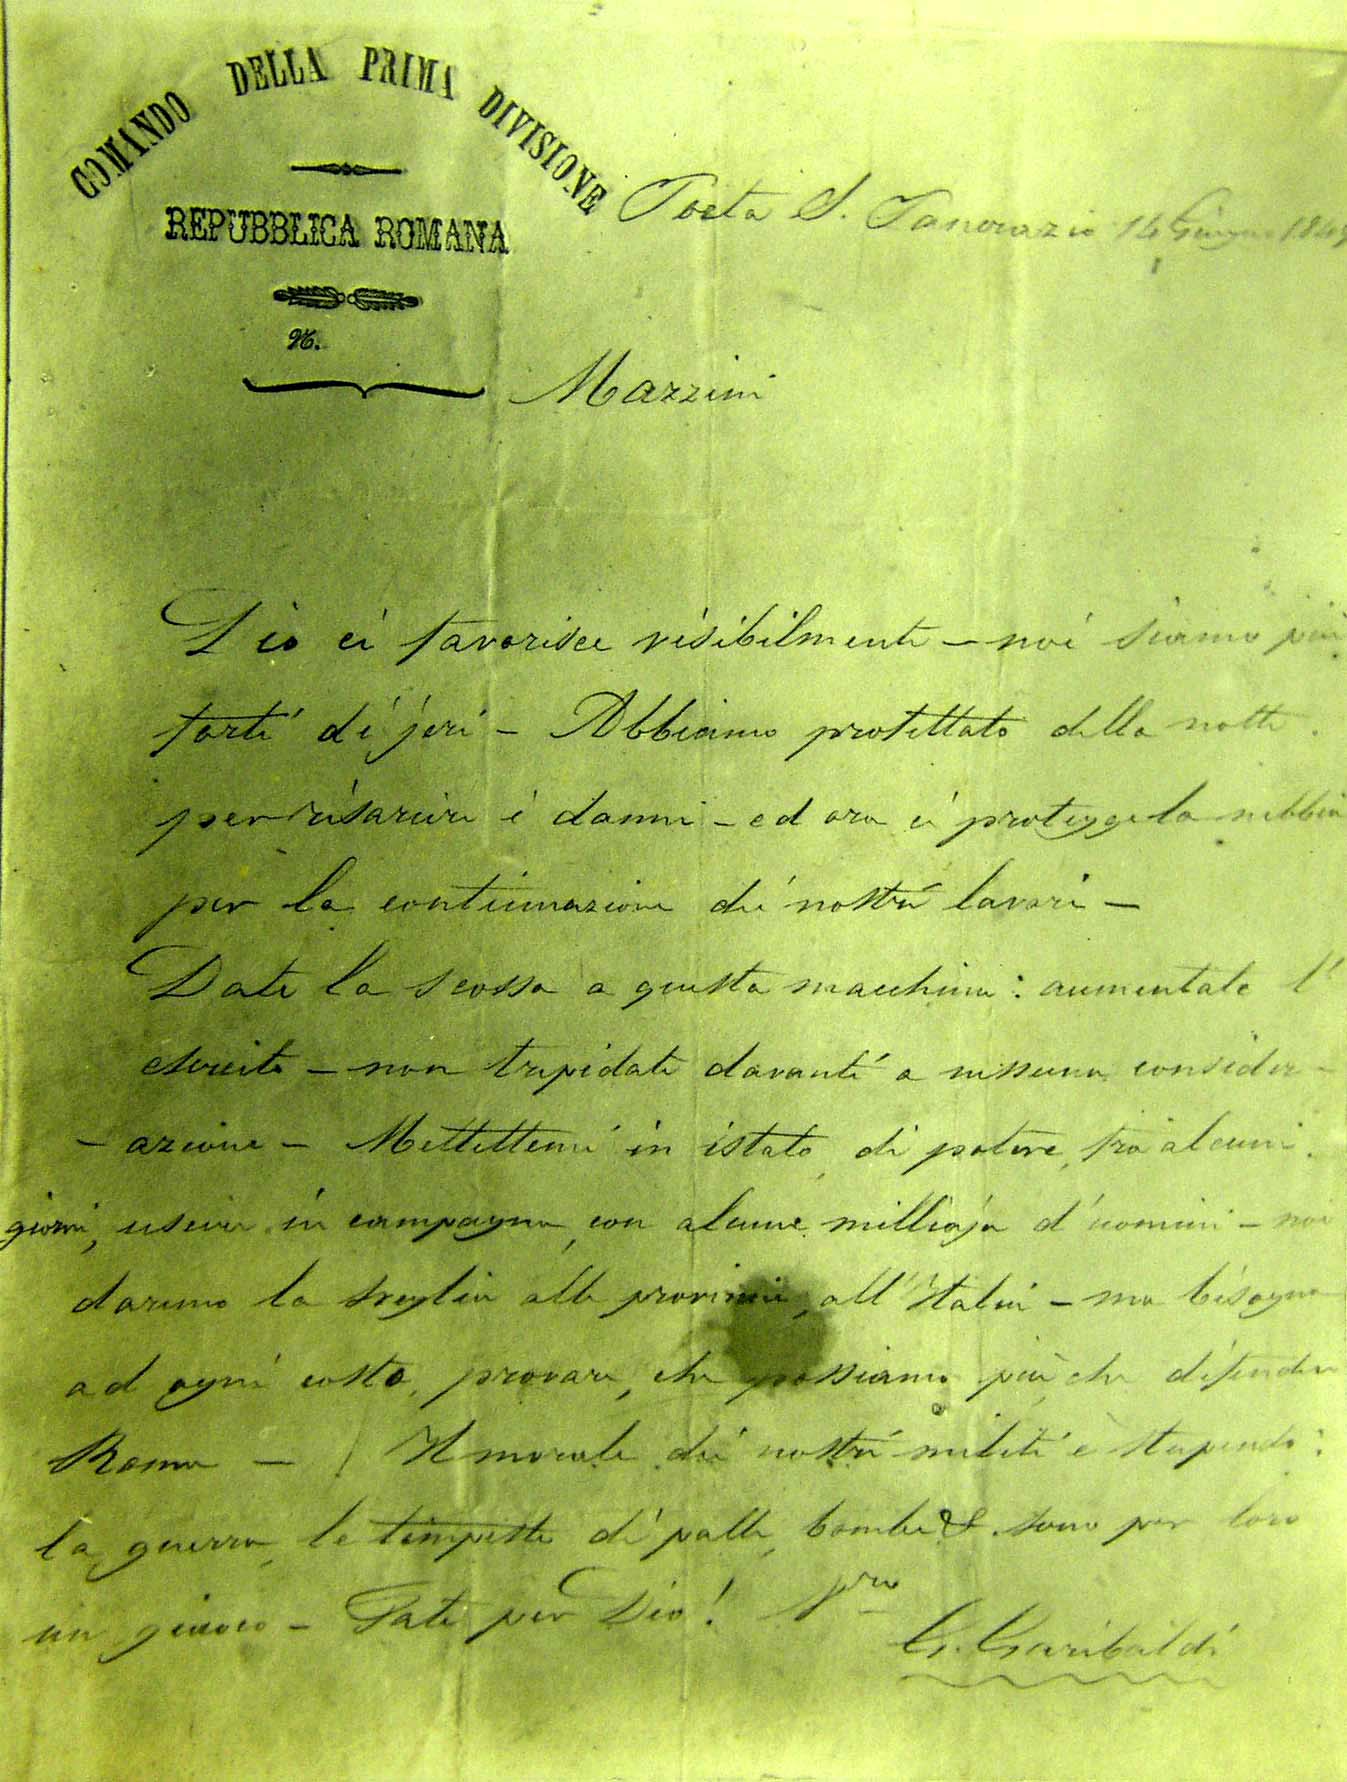 COMANDO DELLA PRIMA DIVISIONE
REPUBBLICA ROMANA
N.
Porta S. Pancrazio 14 Giugno 1849
Mazzini
Dio ci favorisce visibilmente – noi siamo più
forti di jeri – Abbiamo profittato della notte
per risarcire i danni – ed ora ci protegge la nebbia
per la continuazione dei nostri lavori –
Date la scossa a questa macchina: aumentate l'
esercito – non trepidate davanti a nissuna consider–
–azione – Mettetemi in istato, di potere, fra alcuni
giorni, uscire in campagna, con alcune milliaja d'uomini – noi
daremo la sveglia alle provincie, all'Italia – ma bisogna
ad ogni costo, provare, che possiamo più che difender
Roma – Il morale dei nostri militi è stupendo:
la guerra, le tempeste di palle, bombe & sono per loro
un giuoco – Fate per Dio! Vro
G. Garibaldi